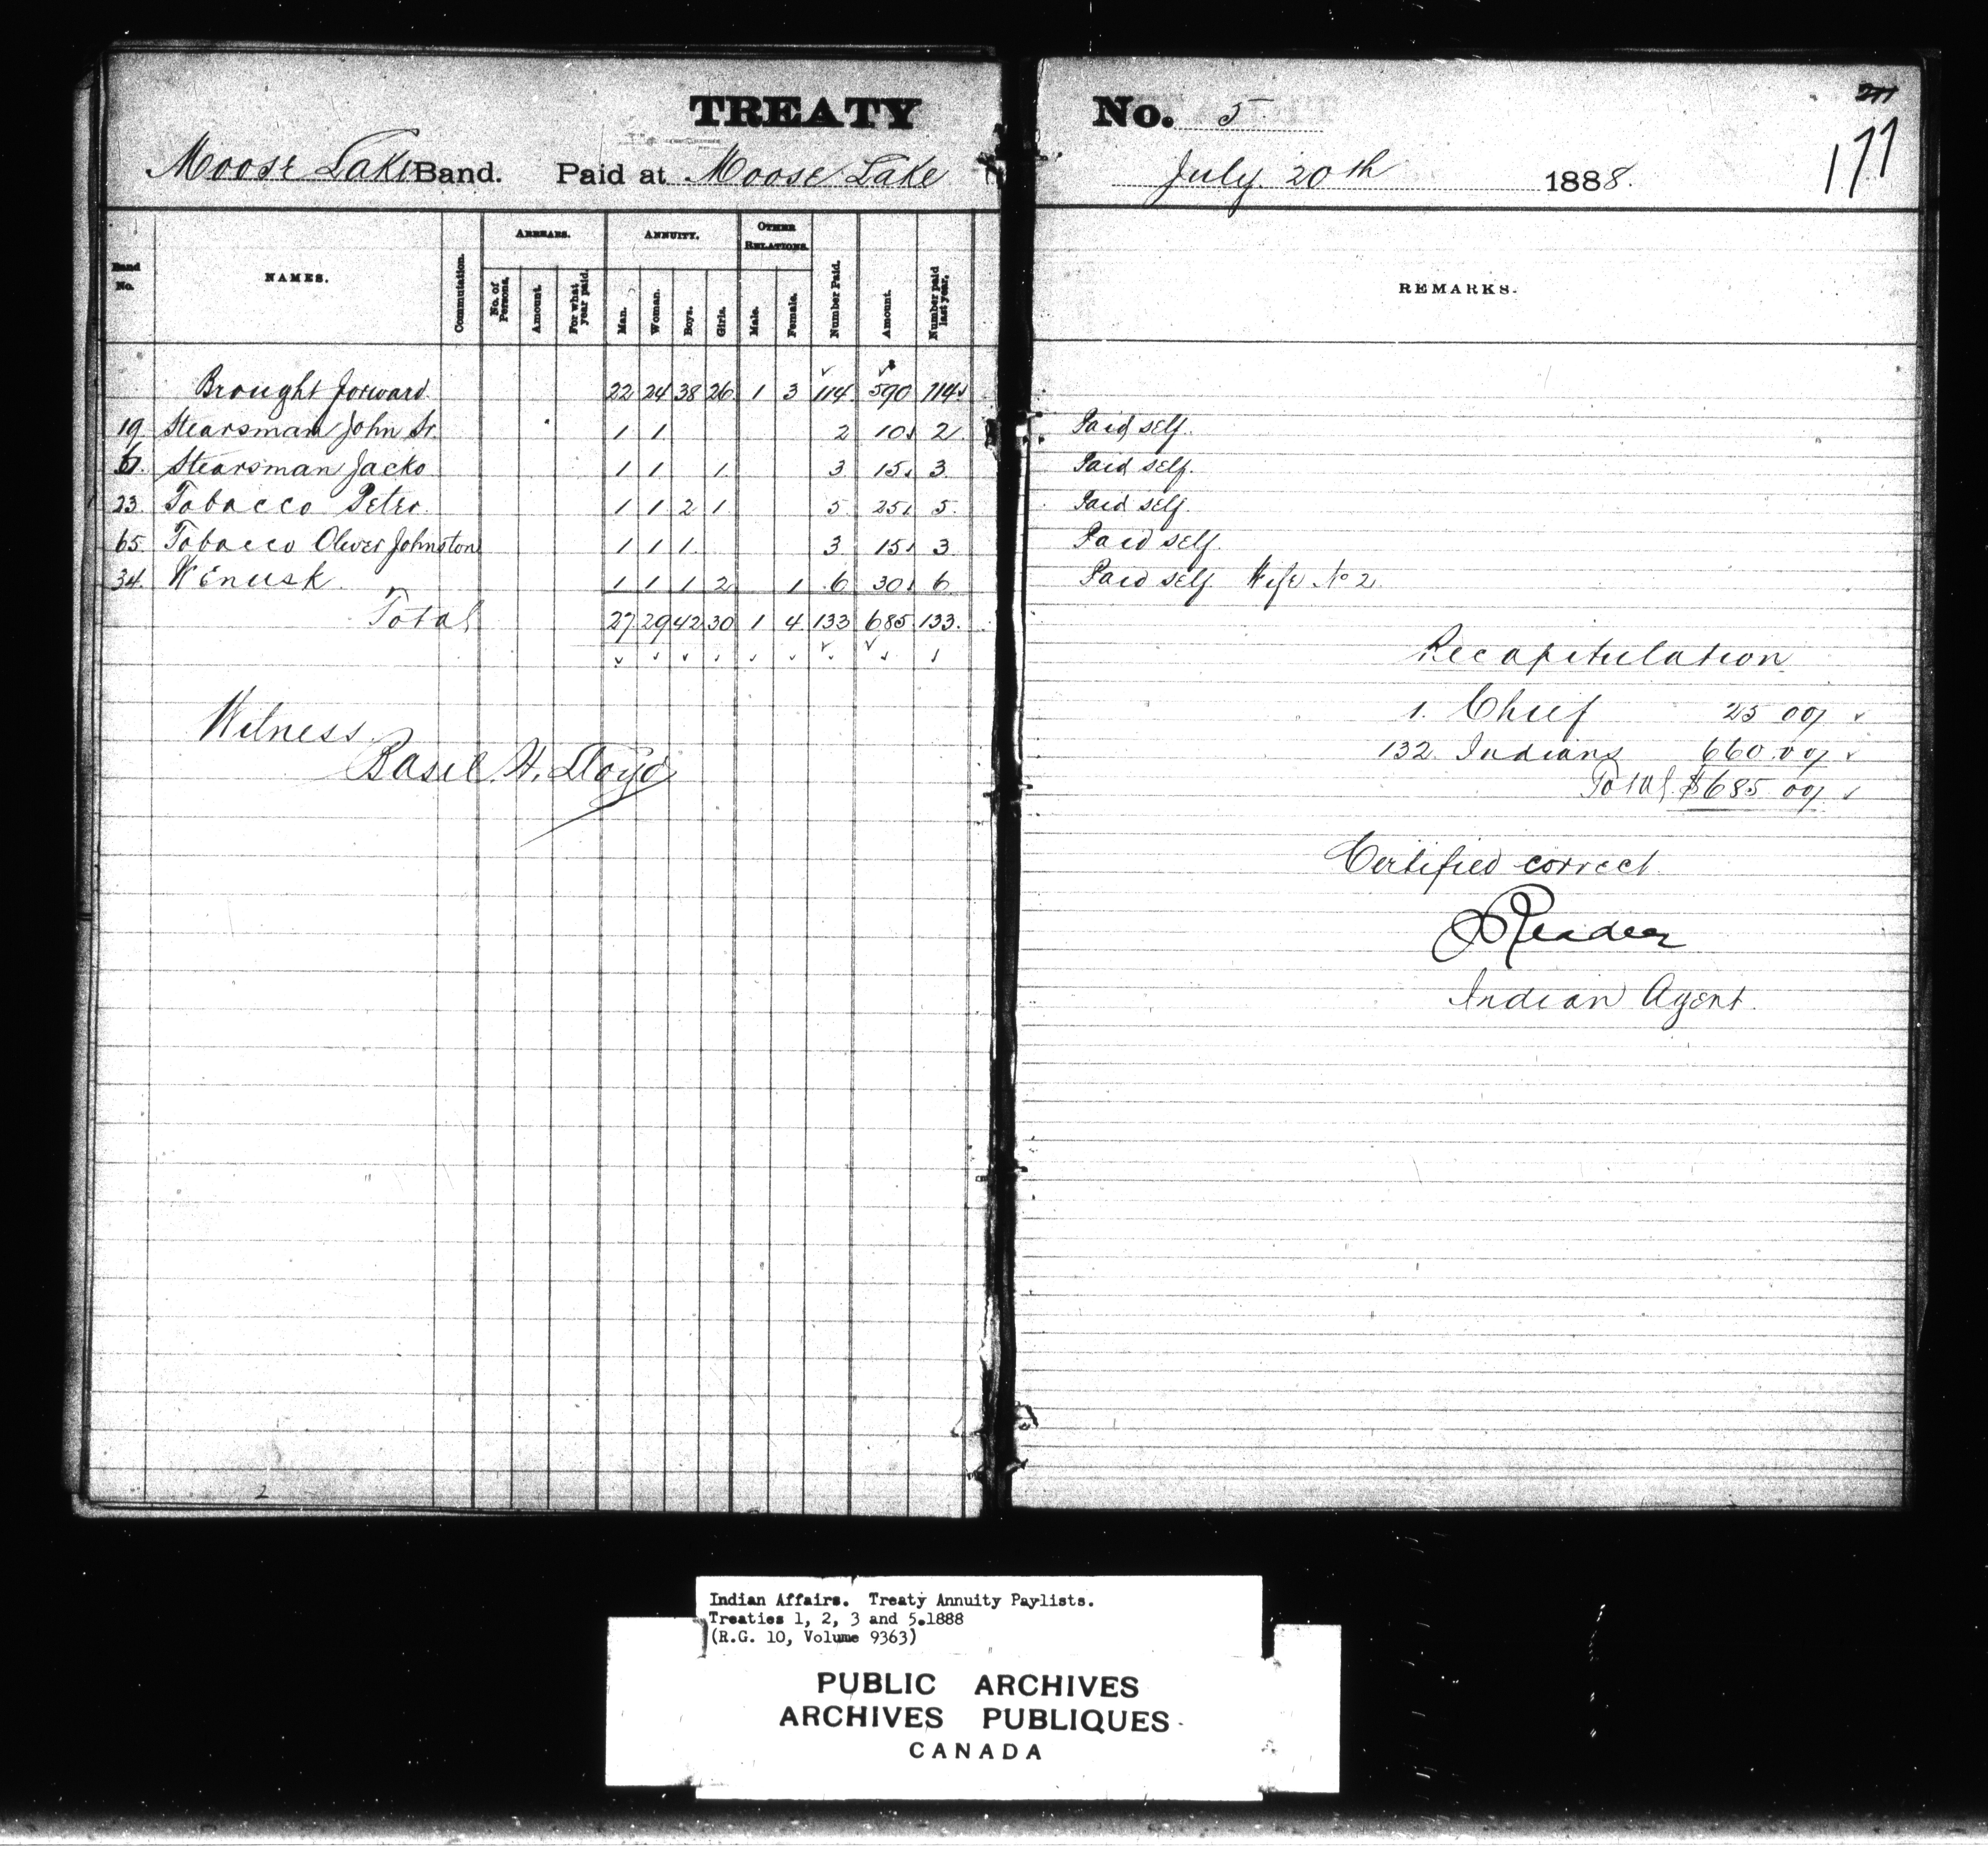 TREATY No. 5
277
177
Moose Lake Band. Paid at Moose Lake July 20th 1888.
Band No. NAMES. Commutation. ARREARS. No. of Persons. Amount. For what year paid. ANNUITY. Man. Woman. Boys. Girls. OTHER RELATIONS. Male. Female. Number Paid. Amount. Number paid last year. REMARKS.
Brought forward 22 24 38 26 1 3 114 590 114
19 Stearsman John Sr. 1 1 2 10 2 Paid self.
Stearsman Jacko 1 1 1 3 15 3 Paid self.
23. Tobacco Peter. 1 1 2 1 5 25 5. Paid self.
65. Tobacco Oliver Johnston 1 1 1 3 15 3 Paid self.
34. Wenusk 1 1 1 2 1 6 30 6 Paid self Wife No 2
Total 27 29 42 30 1 4 133 685 133.
Recapitulation
1. Chief 25 00
132. Indians 660.00
Total $685 00
Witness.
Basil. H. Lloyd
Certified correct.
J Reader
Indian Agent.
2
Indian Affairs. Treaty Annuity Paylists.
Treaties 1, 2, 3 and 5.1888
(R.G. 10, Volume 9363)
PUBLIC ARCHIVES
ARCHIVES PUBLIQUES
CANADA